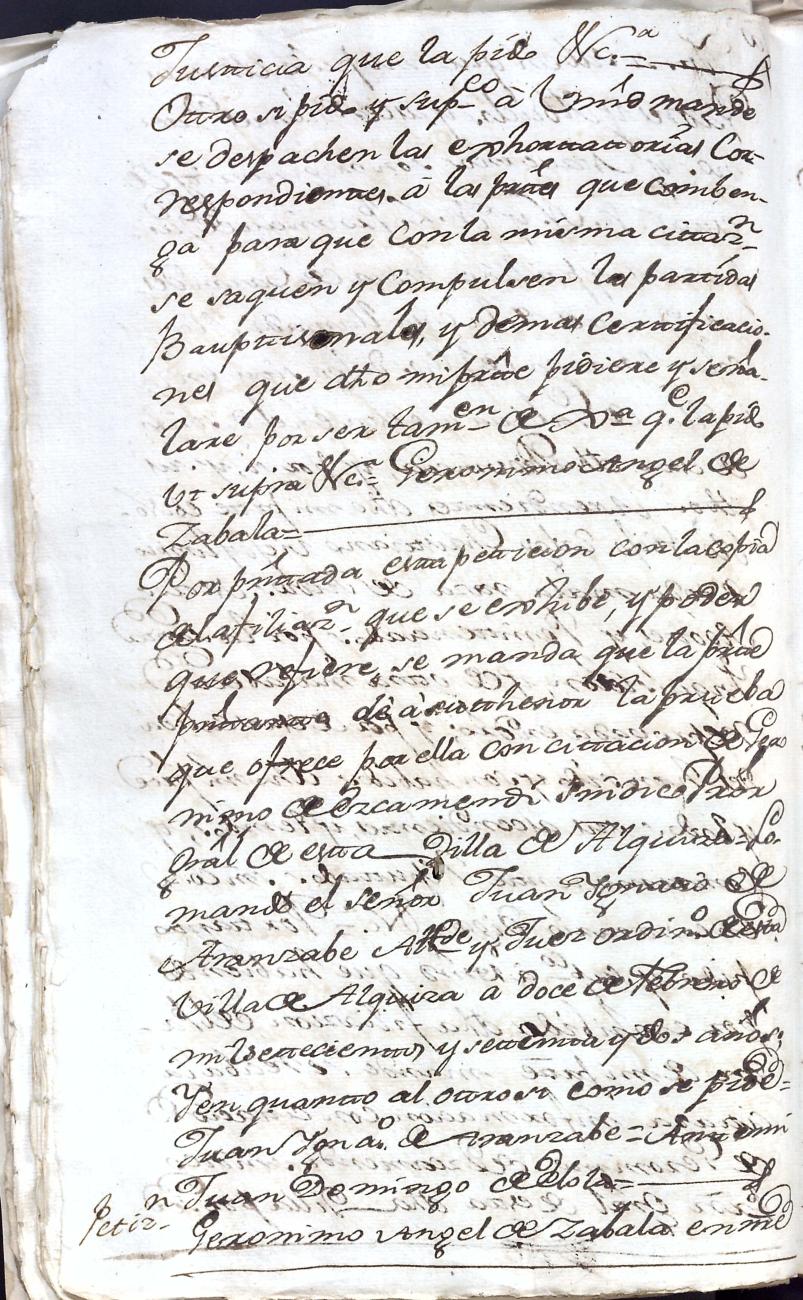 Justicia que la pido &c.ª =
Ottro si pido y sup.co â Vmd mande
se despachen las exhortattorias Cor-
respondientes â las prttes que comben-
ga para que con la misma cittaz.n
se saquen y Compulsen las partidas
Bauptismales, y demas Certtificacio-
nes que dho mi prtte pidiere y seña-
lare por ser tam.en de Jxª q.e la pido
Ut supra &c.ª = Geronimo Angel de
Zabala =
Por prnttada estta petticion con la copia
de la filiaz.n que se exhibe, y poder
que refiere, se manda que la prtte
prnttante dê â su thenor la prueba
que ofrece por ella con cittacion de Gero
nimo de Ezcamendi Sindico Prôr
Grâl de estta Villa de Alquiza = Lo
mandó el señor Juan Ygnacio de
Aranzabe Alc.de y Juez ordin.o de esta
Villa de Alquiza a doce de Febrero de
mil settecienttos y settentta y dos años:
Y en quantto al ottro si como se pide =
Juan Ygn.ao de Aranzabe = Antte mi
Juan Domingo de Olola =
Petiz.n
Geronimo Angel de Zabala en nre